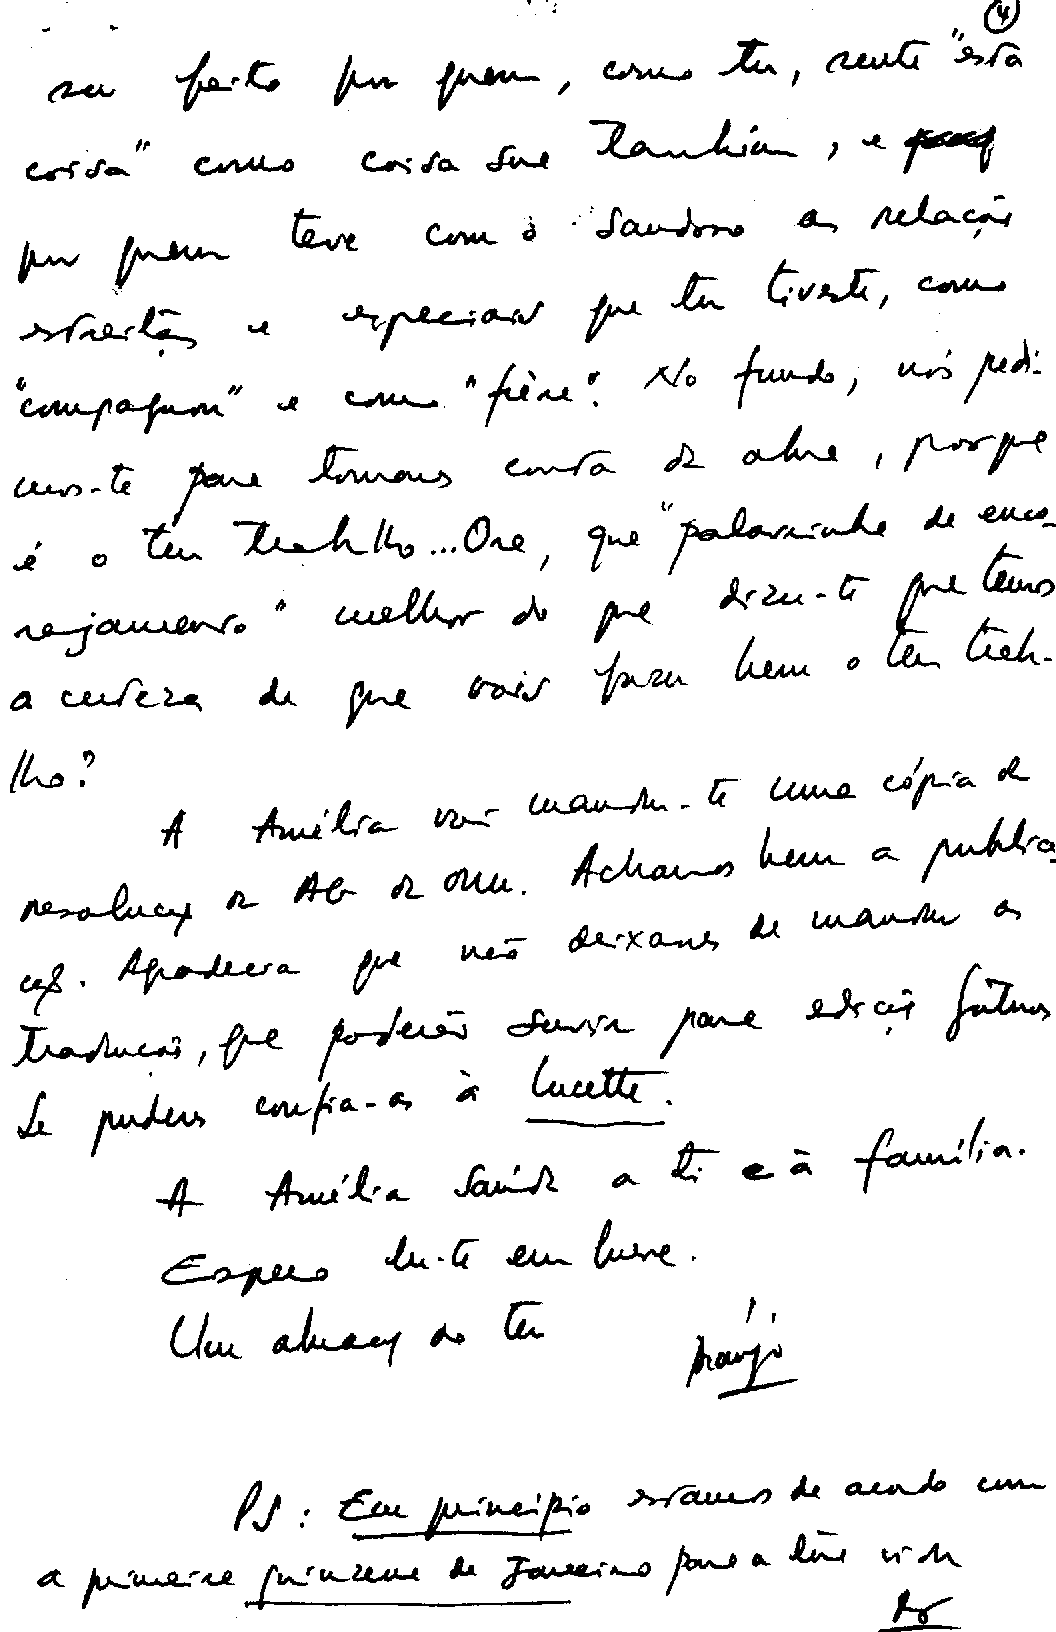 4
ser feito por quem, como tu, sente "esta
coisa" como coisa sua também, e
por quem teve com o saudoso as relações
estreitas e especiais que tu tiveste, como
"compagnon" e como "frère". No fundo, nós pedi-
mos-te para tomares conta da obra, porque
é o teu trabalho... Ora, que "palavrinha de enco-
rajamento" melhor do que dizer-te que temos
a certeza de que vais fazer bem o teu traba-
lho?
A Amélia vai mandar-te uma cópia da
resolução da AG da ONU. Achamos bem a publica-
ção. Agradecia que não deixasses de mandar as
traduções, que poderão servir para edições futuras
Se puderes confia-as à Lucette.
A Amélia saúda a ti e à família.
Espero ler-te em breve.
Um abraço do teu
Araújo
PS: Em princípio estamos de acordo com
a primeira quinzena de Janeiro para a tua vinda